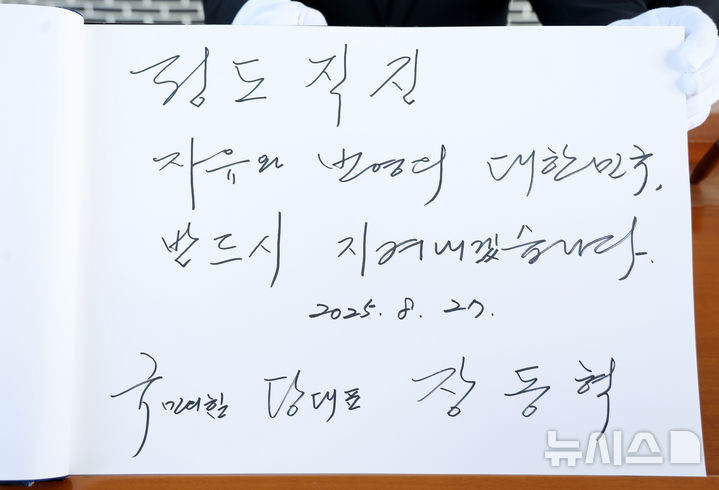 정도직진
자유와 번영의 대한민국,
반드시 지켜내겠습니다.
2025. 8. 27.
국민의힘 당대표 장동혁
뉴시스